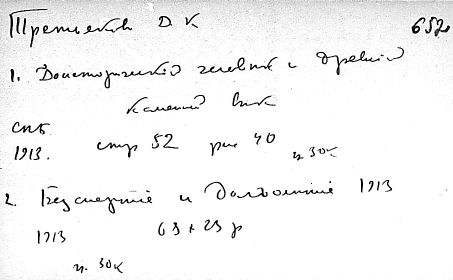 Третьяков Д К 652
1. Доисторический человек и древний
каменный век
СПБ
1913. стр 52 рис 40 ц 30к
2. Безсмертіе и Долголетіе 1913
1913 63 + 23 р
ц. 30к